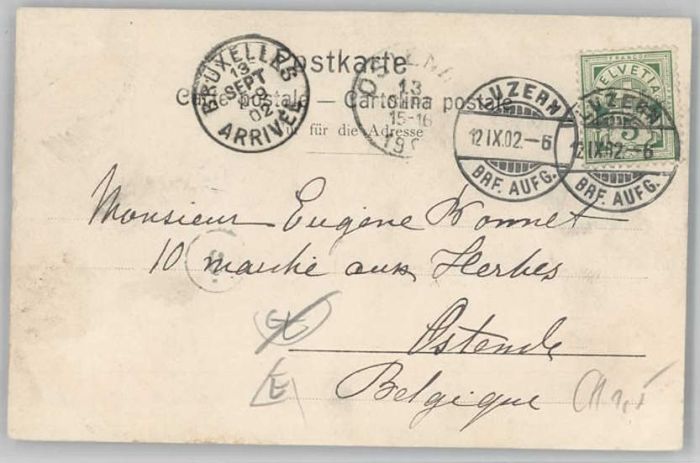 Postkarte
Carte postale — Cartolina postale
für die Adresse
BRUXELLES
13
SEPT
02
ARRIVÉE
13
15-16
LUZERN
12 IX.02.–6
BRF. AUFG.
LUZERN
12 IX.02.–6
BRF. AUFG.
FRANCO
HELVETIA
5
Monsieur Eugène
10 marché aux Herbes
Ostende
Belgique